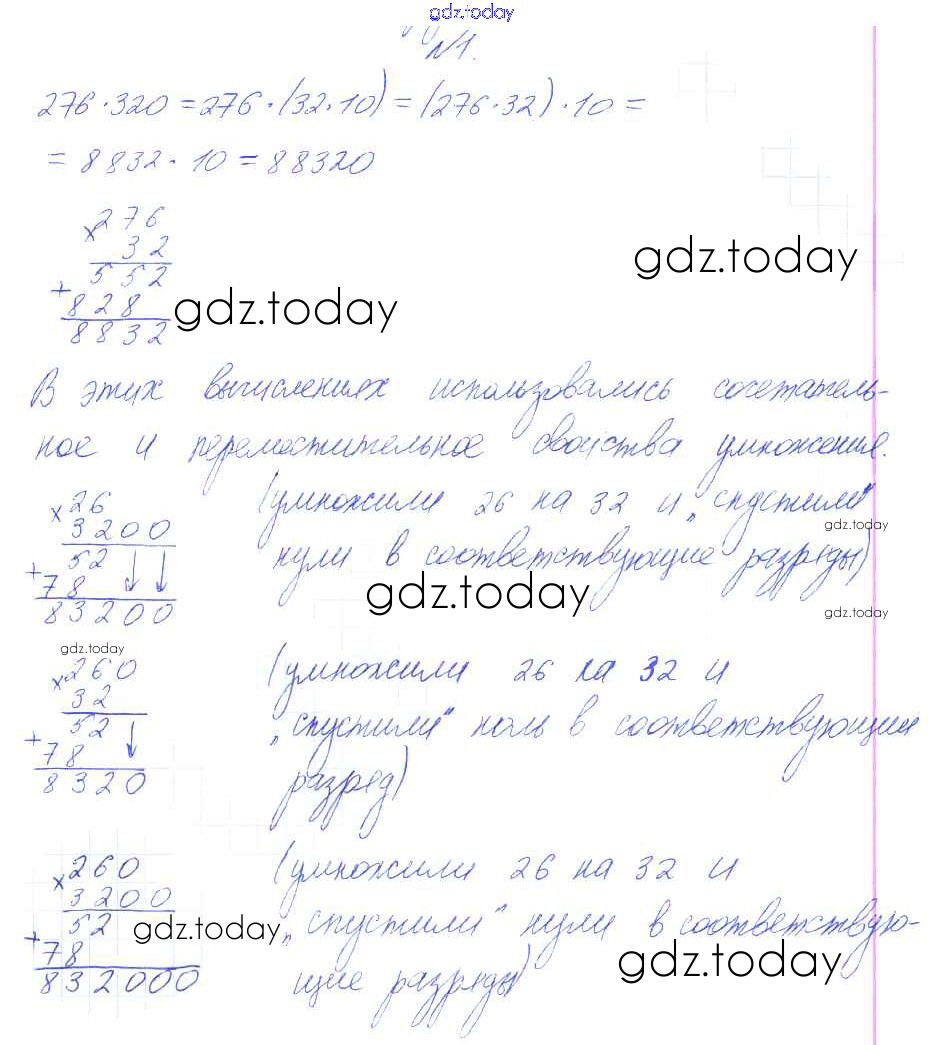 gdz.today
№1.
276·320 = 276·(32·10) = (276·32)·10 =
= 8832·10 = 88320
×276
32
gdz.today
552
+
gdz.today
828
8832
В этих вычислениях использовались сочетатель-
ное и переместительное свойства умножения.
×26 (умножили 26 на 32 и „спустили"
3200
gdz.today
52 нули в соответствующие разряды)
+
78
gdz.today
83200
gdz.today
gdz.today
×260 (умножили 26 на 32 и
32
52 „спустили" ноль в соответствующий
+
78
8320 разряд)
×260 (умножили 26 на 32 и
3200
52 gdz.today „спустили" нули в соответствую-
+
78
gdz.today
832000 щие разряды)